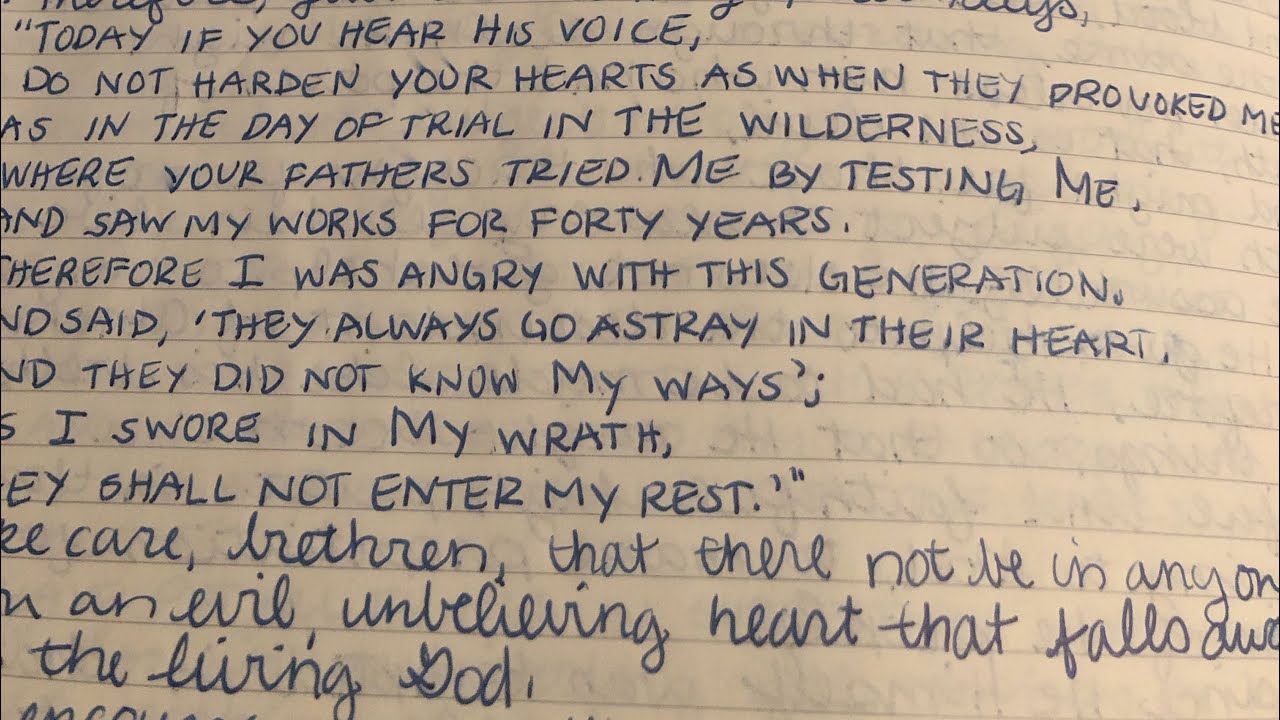 "TODAY IF YOU HEAR HIS VOICE,
DO NOT HARDEN YOUR HEARTS AS WHEN THEY PROVOKED ME
AS IN THE DAY OF TRIAL IN THE WILDERNESS,
WHERE YOUR FATHERS TRIED ME BY TESTING ME,
AND SAW MY WORKS FOR FORTY YEARS.
THEREFORE I WAS ANGRY WITH THIS GENERATION,
ND SAID, 'THEY ALWAYS GO ASTRAY IN THEIR HEART,
ND THEY DID NOT KNOW MY WAYS';
S I SWORE IN MY WRATH,
EY SHALL NOT ENTER MY REST.'"
ke care, brethren, that there not be in anyon
an evil, unbelieving heart that falls awa
the living God.